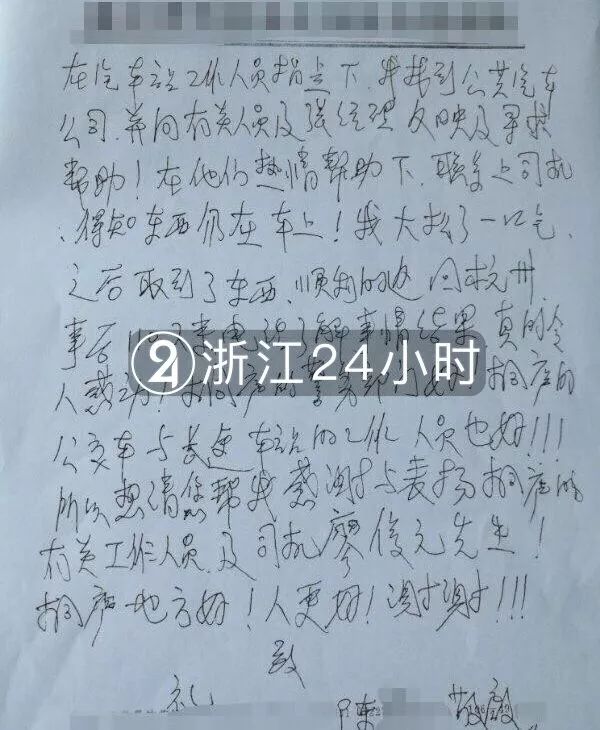 在汽车站工作人员指点下,我找到公共汽车
公司,并向有关人员及张经理反映及寻找
帮助!在他们热情帮助下,联系上司机
、得知东西仍在车上!我大松了一口气、
之后取到了东西、顺利的返回杭州.
事后110又来电话了解事情结果,真的令
浙江24小时
人感动!桐庐的警务部门好!桐庐的
公交车与长途车站的工作人员也好!!!
所以想请您帮我感谢与表扬桐庐的
有关工作人员及司机廖俊元先生!
桐庐地方好!人更好!谢谢!!!
致
礼
陈
敬